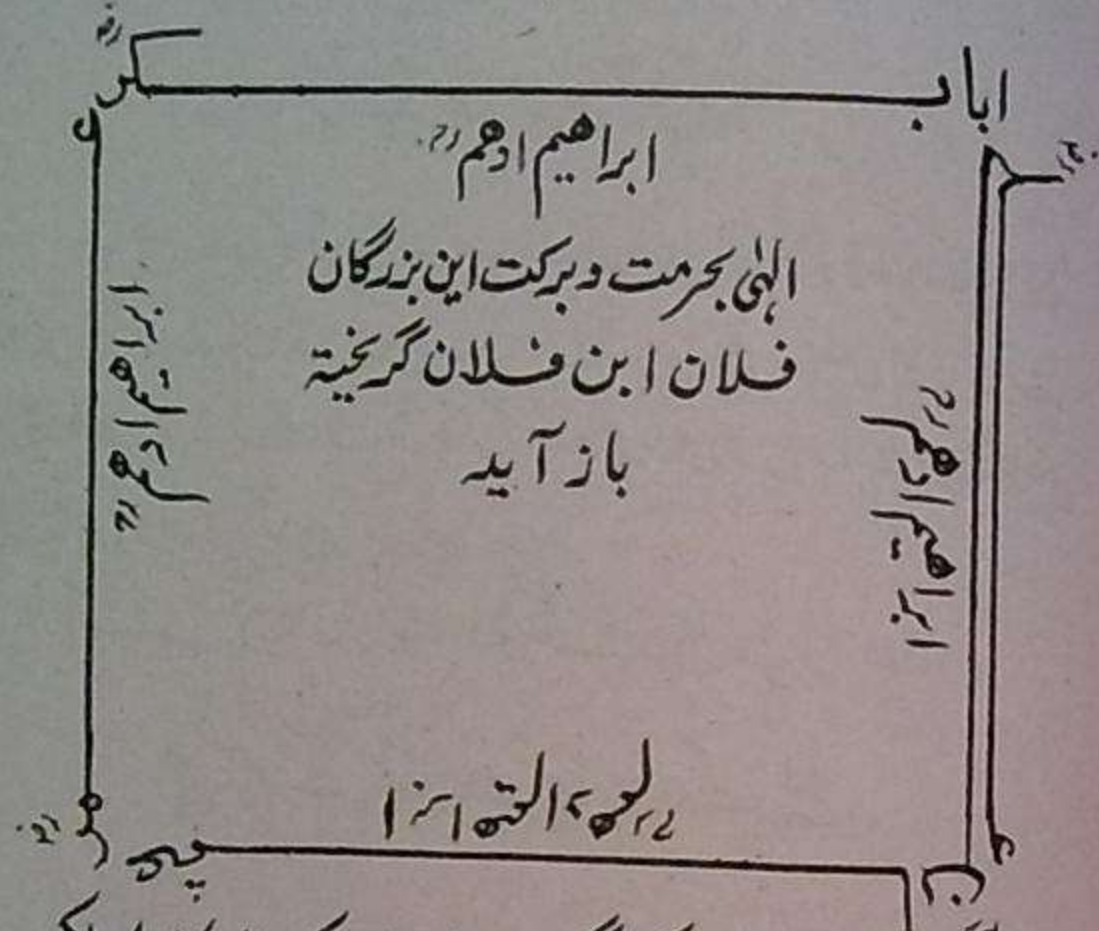 ابابکر رضہ
ابراهیم ادهم رح
الہٰی بحرمت و برکت این بزرگان
فلان ابن فلان گریختہ
باز آید
ابراهیم ادهم رح
ابراهیم ادهم رح
ابراهیم ادهم رح